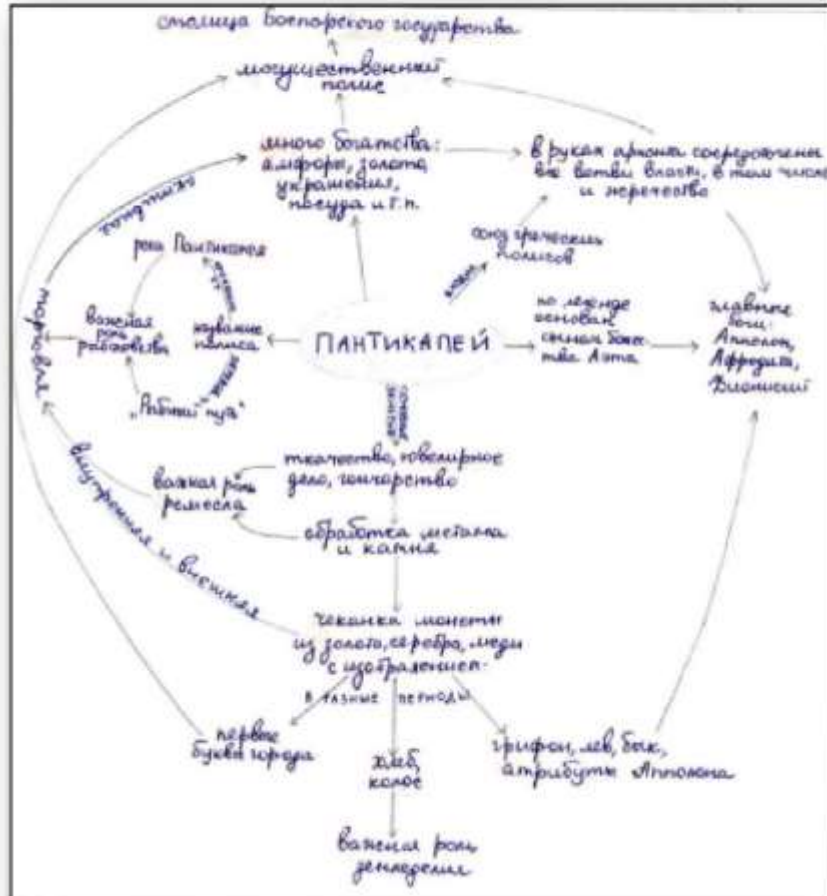 столица Боспорского государства
могущественный
полис
много богатства:
амфоры, золото,
украшения,
посуда и т.п.
в руках архонта сосредоточены
все ветви власти, в том числе
и жречество
активная
союз греческих
полисов
река Пантикапея
название
полиса
важная
роль
рабства
торговля
ПАНТИКАПЕЙ
по легенде
основан
сыном
Аэта
главные
боги:
Апполон,
Афродита,
Дионисий
„Рыбный путь"
ткачество, ювелирное
дело, гончарство
важная роль
ремесла
обработка металла
и камня
внутренняя и внешняя
чеканка монеты
из золота, серебра, меди
с изображением
В РАЗНЫЕ ПЕРИОДЫ
первые
буква города
хлеб,
колос
грифон, лев, бык,
атрибуты Апполона
важная роль
земледелия